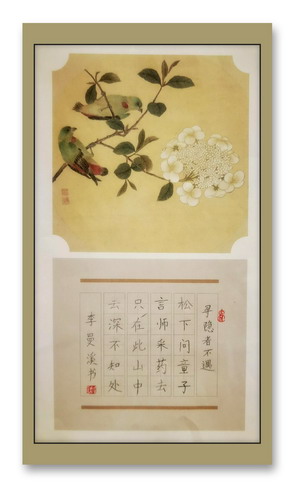 寻隐者不遇
松下问童子
言师采药去
只在此山中
云深不知处
李曼溪书